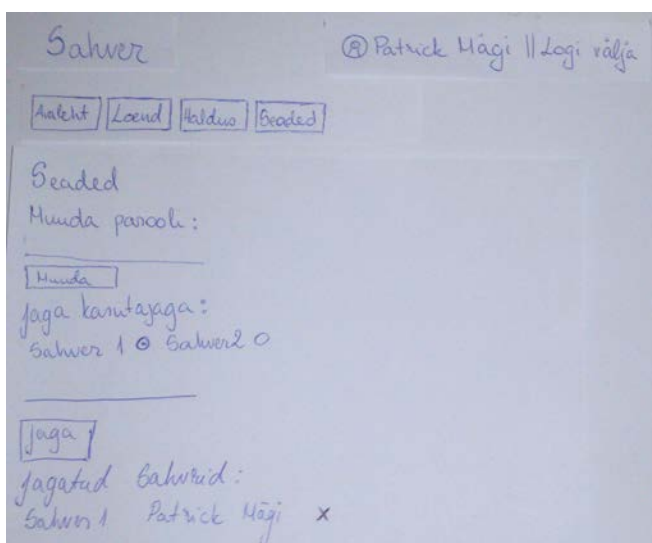 Sahver
Ⓡ Patrick Mägi || Logi välja
Avaleht Loend Haldus Seaded
Seaded
Muuda parooli:
Muuda
Jaga kasutajaga:
Sahver 1 ⊙ Sahver2 ○
Jaga
Jagatud Sahvrid:
Sahver 1 Patrick Mägi X